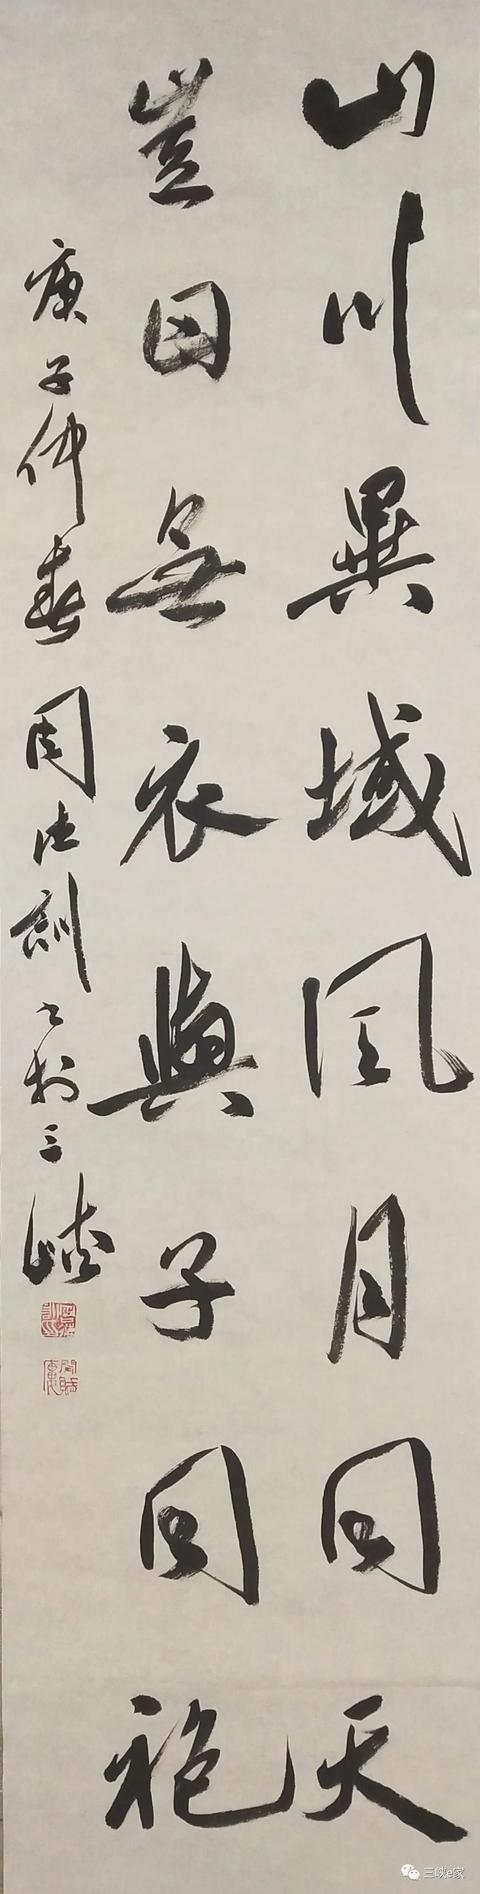 山川異域風月同天
豈曰無衣與子同袍
庚子仲春 周德訓书於三峡
三峡e家